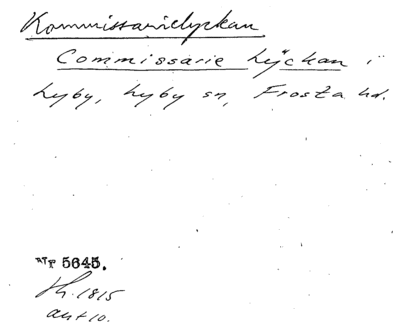 Kommissarielyckan
Commissarie Lÿckan i
Lyby, Lyby sn, Frosta hd.
Nr 5645.
1815
akt 10.